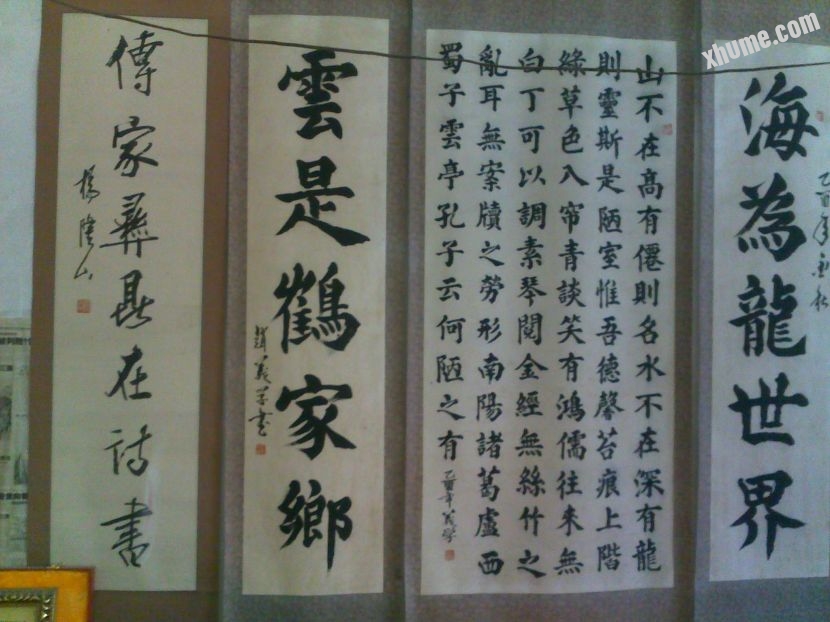 xhume.com
乙酉年新秋
海為龍世界
山不在高有僊則名水不在深有龍
則靈斯是陋室惟吾德馨苔痕上階
綠草色入帘青談笑有鴻儒往來無
白丁可以調素琴閱金經無絲竹之
亂耳無案牘之勞形南陽諸葛廬西
蜀子雲亭孔子云何陋之有
乙酉年義學
雲是鶴家鄉
趙義学書
傳家彝鼎在詩書
楊隆山